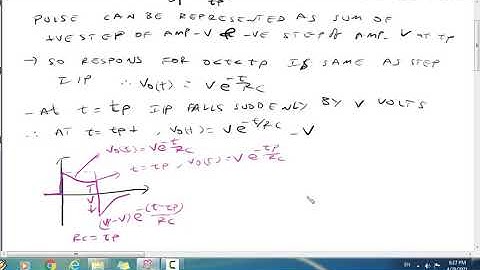 tp
PULSE CAN BE REPRESENTED AS SUM OF
+VE STEP OF AMP-V & -VE STEP OF AMP-V AT tp
→ SO RESPONS FOR 0<t<tp IS SAME AS STEP
I/P ∴ Vo(t) = V e^-t/RC
- At t = tp I/P FALLS SUDDENLY BY V VOLTS
∴ AT t = tp+, Vo(t) = V e^-t/RC - V
Vo(t) = V e^-t/RC
t = tp, Vo(t) = V e^-tp/RC
V
(V-V) e^-(t-tp)/RC
RC = tp
EN
6:27 PM